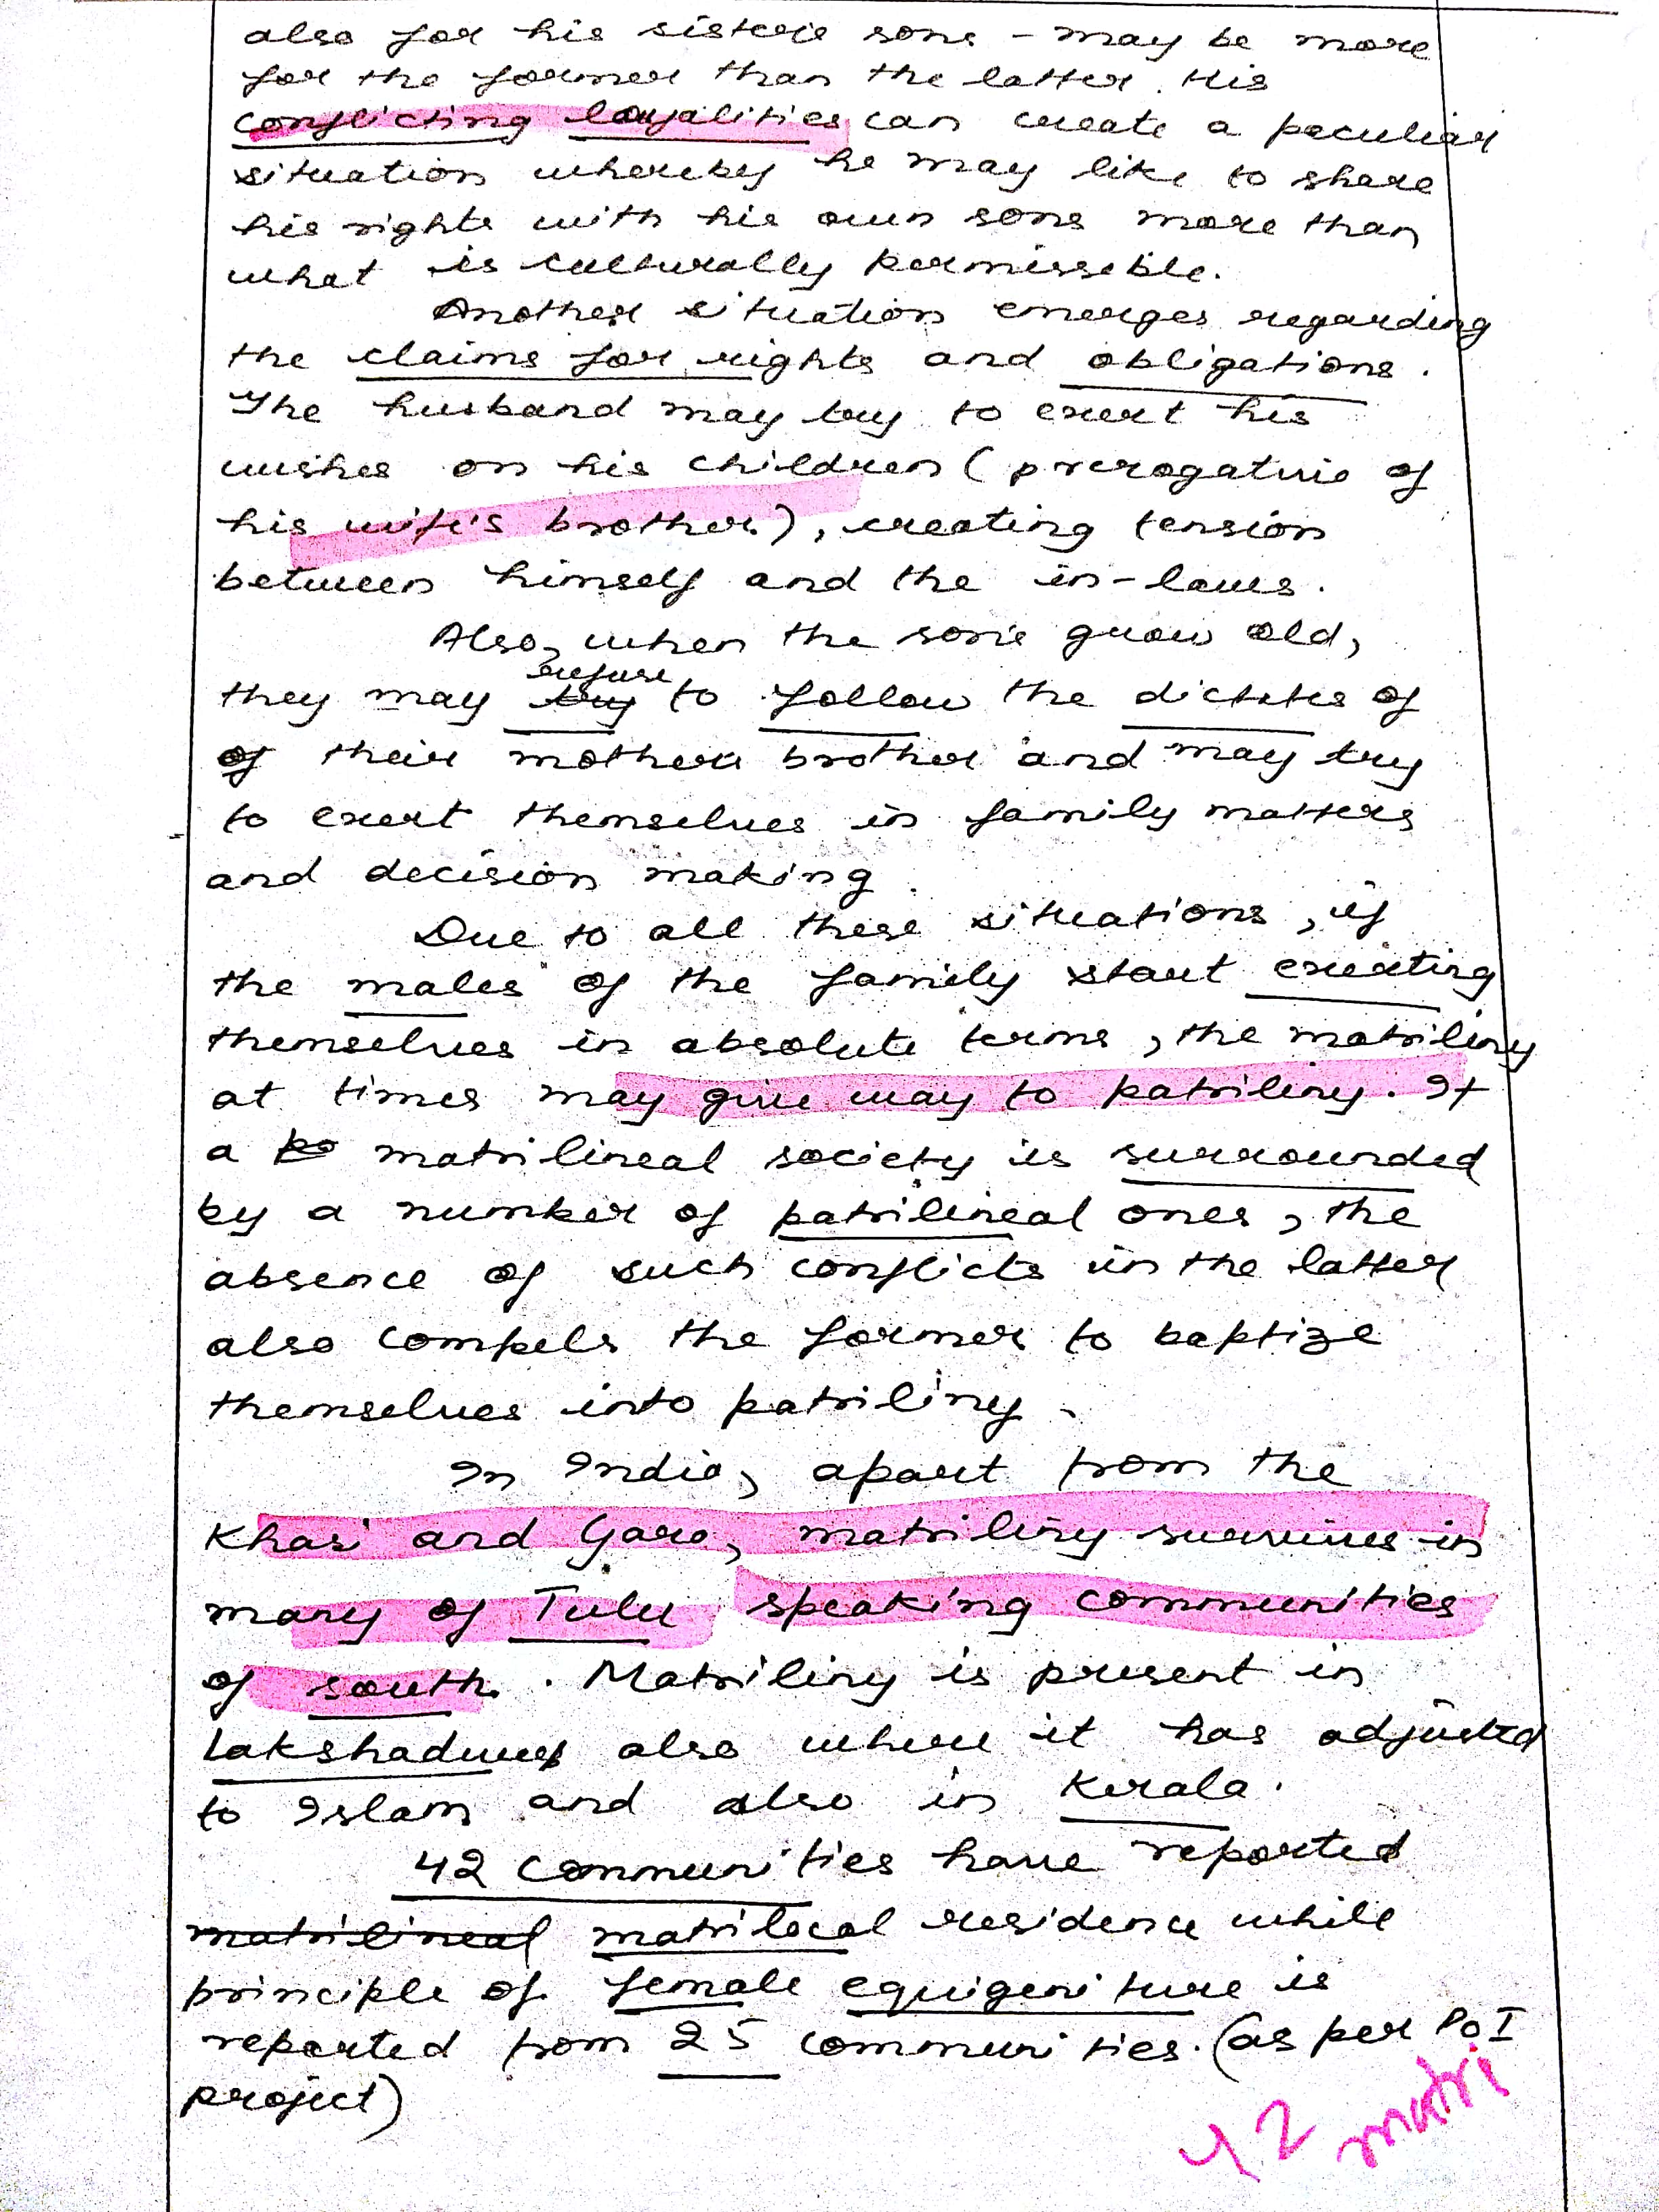 also for his sisters sons - may be more
for the former than the latter. His
conflicting loyalities can create a peculiar
situation whereby he may like to share
his rights with his own sons more than
what is culturally permissible.
Another situation emerges regarding
the claims for rights and obligations.
The husband may try to exert his
wishes on his children (prerogative of
his wife's brother), creating tension
between himself and the in-laws.
Also, when the sons grow old,
refuse
they may try to follow the dictates of
of their mothers brother and may try
to exert themselves in family matters
and decision making.
Due to all these situations, if
the males of the family start exerting
themselves in absolute terms, the matriliny
at times may give way to patriliny. If
a matrilineal society is surrounded
by a number of patrilineal ones, the
absence of such conflicts in the latter
also compels the former to baptize
themselves into patriliny.
In India, apart from the
Khasi and Garo, matriliny survives in
many of Tulu speaking communities
of south. Matriliny is present in
Lakshadweep also where it has adjusted
to Islam and also in Kerala.
42 communities have reported
matrilineal matrilocal residence while
principle of female equigeniture is
reported from 25 communities. (as per PoI
project)
42 matri